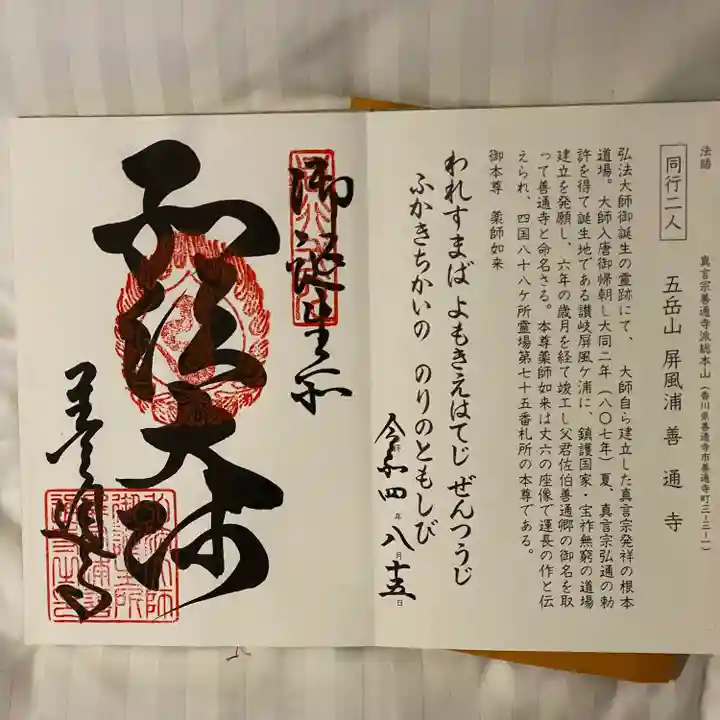 法語
真言宗善通寺派総本山(香川県善通寺市善通寺町三-三-一)
同行二人
五岳山 屏風浦 善通寺
弘法大師御誕生の霊跡にて、大師自ら建立した真言宗発祥の根本
道場。大師入唐御帰朝し大同二年(八〇七年)夏、真言宗弘通の勅
許を得て誕生地である讃岐屏風ケ浦に、鎮護国家・宝祚無窮の道場
建立を発願し、六年の歳月を経て竣工し父君佐伯善通卿の御名を取
って善通寺と命名さる。本尊薬師如来は丈六の座像で運長の作と伝
えられ、四国八十八ケ所霊場第七十五番札所の本尊である。
御本尊 薬師如来
われすまば よもきえはてじ ぜんつうじ
ふかきちかいの のりのともしび
令和四年八月十五日
御誕生所
弘法大師
善通寺